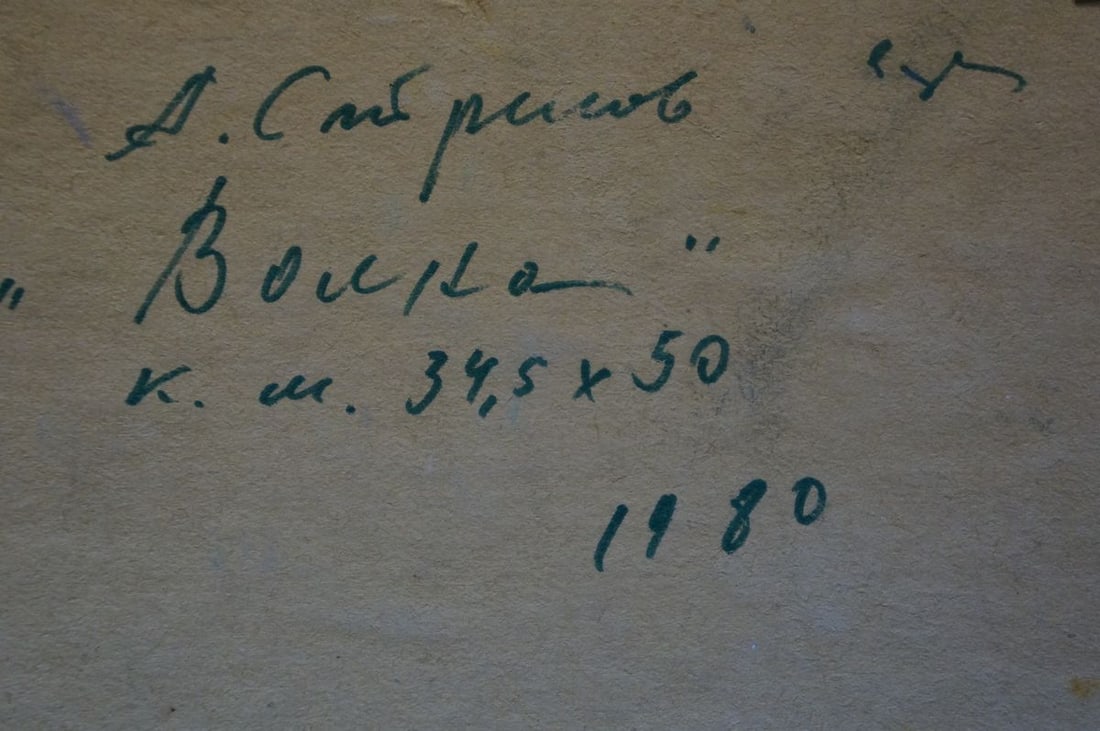 А. Сибрисов
" Волна "
к. м. 34,5 х 50
1980